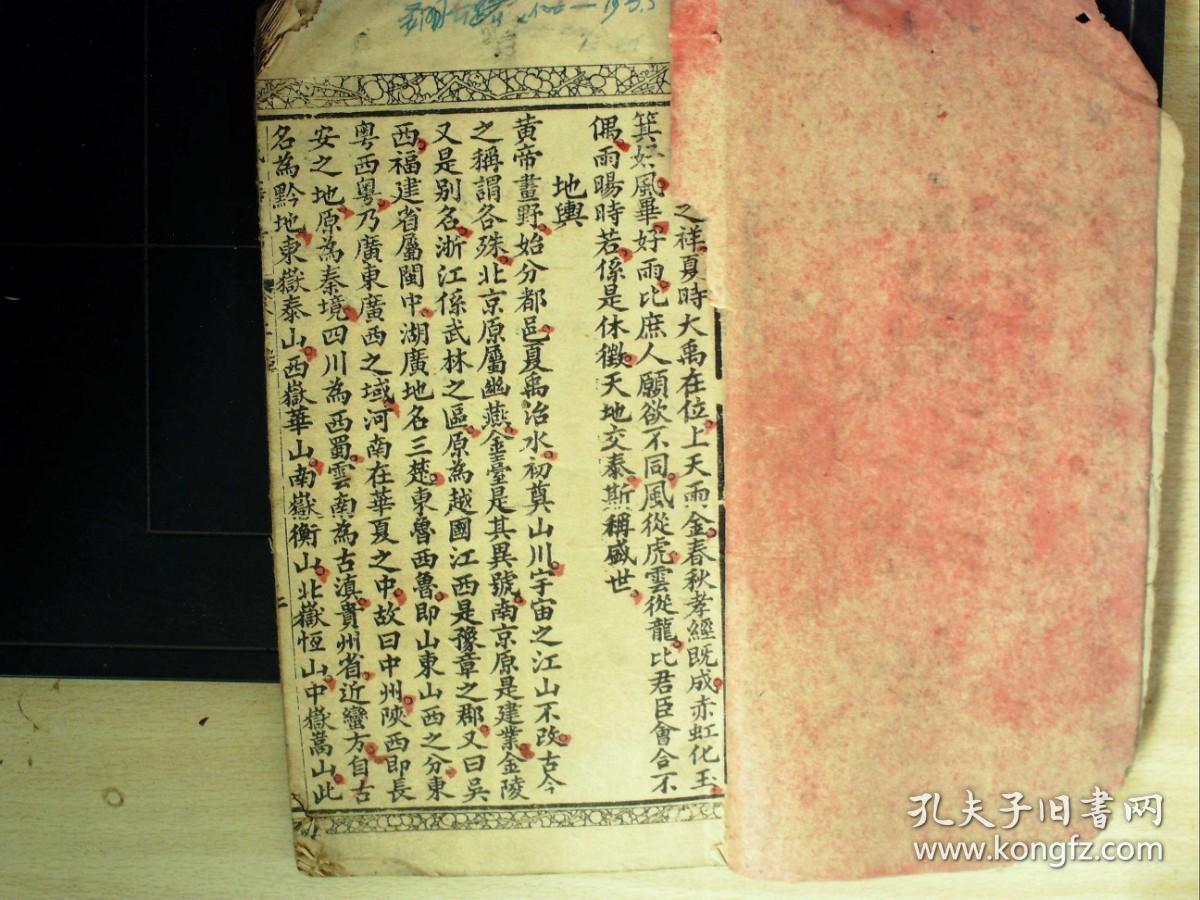 之祥夏時大禹在位上天雨金春秋孝經既成赤虹化玉
箕好風畢好雨比庶人願欲不同風從虎雲從龍比君臣會合不
偶雨暘時若係是休徵天地交泰斯稱盛世
地輿
黃帝畫野始分都邑夏禹治水初奠山川宇宙之江山不改古今
之稱謂各殊北京原屬幽燕金臺是其異號南京原是建業金陵
又是别名浙江係武林之區原為越國江西是豫章之郡又曰吳
西福建省屬閩中湖廣地名三楚東魯西魯即山東山西之分東
粵西粵乃廣東廣西之域河南在華夏之中故曰中州陝西即長
安之地原為秦境四川為西蜀雲南為古滇貴州省近蠻方自古
名為黔地東嶽泰山西嶽華山南嶽衡山北嶽恒山中嶽嵩山此
孔夫子旧书网
www.kongfz.com